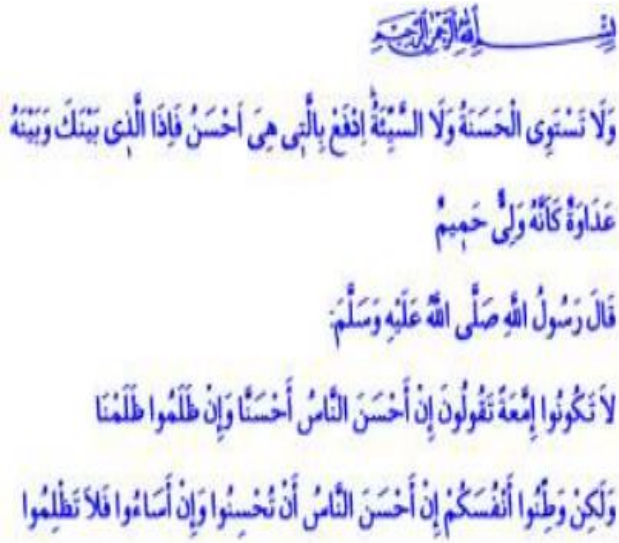 بِسْمِ اللهِ الرَّحْمٰنِ الرَّحِيمِ
وَلَا تَسْتَوِى الْحَسَنَةُ وَلَا السَّيِّئَةُ اِدْفَعْ بِالَّتٖى هِىَ اَحْسَنُ فَاِذَا الَّذٖى بَيْنَكَ وَبَيْنَهُ
عَدَاوَةٌ كَاَنَّهُ وَلِىٌّ حَمٖيمٌ
قَالَ رَسُولُ اللَّهِ صَلَّى اللَّهُ عَلَيْهِ وَسَلَّمَ:
لاَ تَكُونُوا إِمَّعَةً تَقُولُونَ إِنْ أَحْسَنَ النَّاسُ أَحْسَنَّا وَإِنْ ظَلَمُوا ظَلَمْنَا
وَلَكِنْ وَطِّنُوا أَنْفُسَكُمْ إِنْ أَحْسَنَ النَّاسُ أَنْ تُحْسِنُوا وَإِنْ أَسَاءُوا فَلاَ تَظْلِمُوا